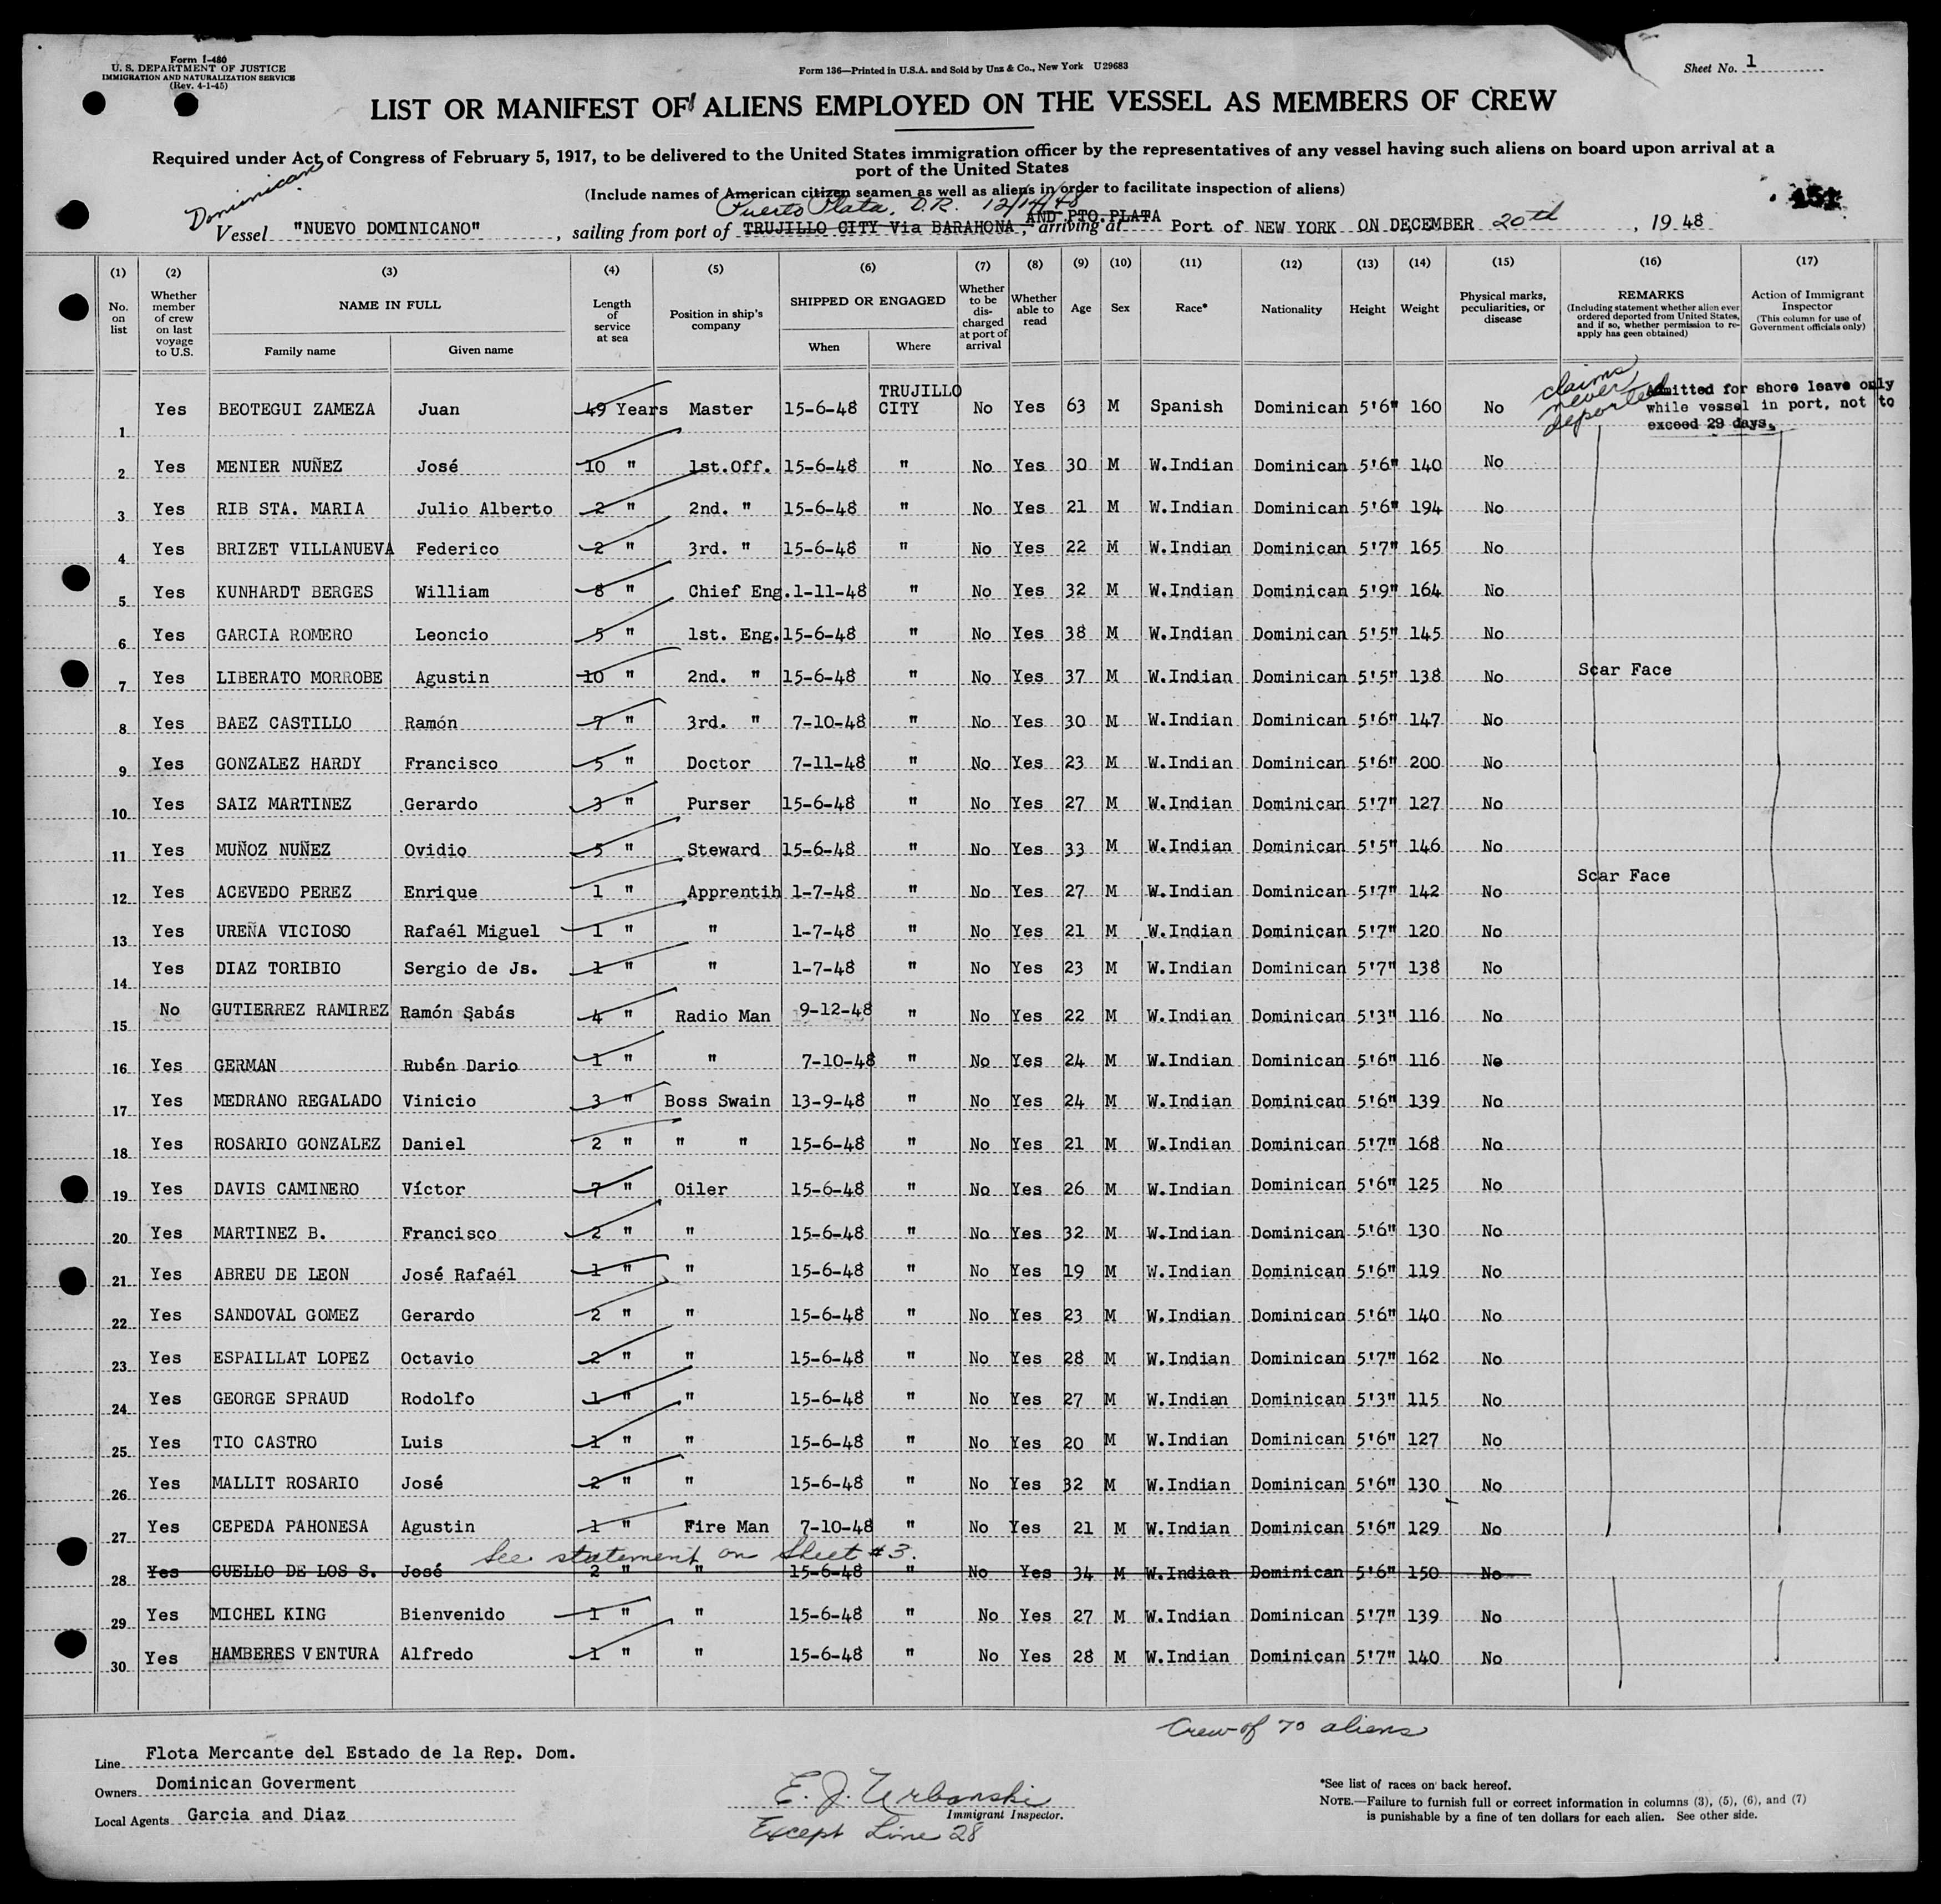 Form I-480
U. S. DEPARTMENT OF JUSTICE
IMMIGRATION AND NATURALIZATION SERVICE
(Rev. 4-1-45)
Form 136—Printed in U.S.A. and Sold by Unz & Co., New York U29683
Sheet No. 1
LIST OR MANIFEST OF ALIENS EMPLOYED ON THE VESSEL AS MEMBERS OF CREW
Required under Act of Congress of February 5, 1917, to be delivered to the United States immigration officer by the representatives of any vessel having such aliens on board upon arrival at a
port of the United States
(Include names of American citizen seamen as well as aliens in order to facilitate inspection of aliens)
Dominican
Puerto Plata, D.R. 12/14/48
AND PTO.PLATA
Vessel "NUEVO DOMINICANO", sailing from port of TRUJILLO CITY Via BARAHONA, arriving at Port of NEW YORK ON DECEMBER 20th, 1948
(1) (2) (3) (4) (5) (6) (7) (8) (9) (10) (11) (12) (13) (14) (15) (16) (17)
No. on list
Whether member of crew on last voyage to U.S.
NAME IN FULL
Family name
Given name
Length of service at sea
Position in ship's company
SHIPPED OR ENGAGED
When
Where
Whether to be discharged at port of arrival
Whether able to read
Age
Sex
Race*
Nationality
Height
Weight
Physical marks, peculiarities, or disease
REMARKS
(Including statement whether alien ever ordered deported from United States, and if so, whether permission to re-apply has geen obtained)
Action of Immigrant Inspector
(This column for use of Government officials only)
claims never deported
Admitted for shore leave only
while vessel in port, not to
exceed 29 days.
1 Yes BEOTEGUI ZAMEZA Juan 49 Years Master 15-6-48 TRUJILLO CITY No Yes 63 M Spanish Dominican 5'6" 160 No
2 Yes MENIER NUÑEZ José 10 " 1st.Off. 15-6-48 " No Yes 30 M W.Indian Dominican 5'6" 140 No
3 Yes RIB STA. MARIA Julio Alberto 2 " 2nd. " 15-6-48 " No Yes 21 M W.Indian Dominican 5'6" 194 No
4 Yes BRIZET VILLANUEVA Federico 2 " 3rd. " 15-6-48 " No Yes 22 M W.Indian Dominican 5'7" 165 No
5 Yes KUNHARDT BERGES William 8 " Chief Eng. 1-11-48 " No Yes 32 M W.Indian Dominican 5'9" 164 No
6 Yes GARCIA ROMERO Leoncio 5 " 1st. Eng. 15-6-48 " No Yes 38 M W.Indian Dominican 5'5" 145 No
7 Yes LIBERATO MORROBE Agustin 10 " 2nd. " 15-6-48 " No Yes 37 M W.Indian Dominican 5'5" 138 No Scar Face
8 Yes BAEZ CASTILLO Ramón 7 " 3rd. " 7-10-48 " No Yes 30 M W.Indian Dominican 5'6" 147 No
9 Yes GONZALEZ HARDY Francisco 5 " Doctor 7-11-48 " No Yes 23 M W.Indian Dominican 5'6" 200 No
10 Yes SAIZ MARTINEZ Gerardo 3 " Purser 15-6-48 " No Yes 27 M W.Indian Dominican 5'7" 127 No
11 Yes MUÑOZ NUÑEZ Ovidio 5 " Steward 15-6-48 " No Yes 33 M W.Indian Dominican 5'5" 146 No
12 Yes ACEVEDO PEREZ Enrique 1 " Apprentih 1-7-48 " No Yes 27 M W.Indian Dominican 5'7" 142 No Scar Face
13 Yes UREÑA VICIOSO Rafaél Miguel 1 " " 1-7-48 " No Yes 21 M W.Indian Dominican 5'7" 120 No
14 Yes DIAZ TORIBIO Sergio de Js. 1 " " 1-7-48 " No Yes 23 M W.Indian Dominican 5'7" 138 No
15 No GUTIERREZ RAMIREZ Ramón Sabás 4 " Radio Man 9-12-48 " No Yes 22 M W.Indian Dominican 5'3" 116 No
16 Yes GERMAN Rubén Dario 1 " " 7-10-48 " No Yes 24 M W.Indian Dominican 5'6" 116 No
17 Yes MEDRANO REGALADO Vinicio 3 " Boss Swain 13-9-48 " No Yes 24 M W.Indian Dominican 5'6" 139 No
18 Yes ROSARIO GONZALEZ Daniel 2 " " " 15-6-48 " No Yes 21 M W.Indian Dominican 5'7" 168 No
19 Yes DAVIS CAMINERO Víctor 7 " Oiler 15-6-48 " No Yes 26 M W.Indian Dominican 5'6" 125 No
20 Yes MARTINEZ B. Francisco 2 " " 15-6-48 " No Yes 32 M W.Indian Dominican 5'6" 130 No
21 Yes ABREU DE LEON José Rafaél 1 " " 15-6-48 " No Yes 19 M W.Indian Dominican 5'6" 119 No
22 Yes SANDOVAL GOMEZ Gerardo 2 " " 15-6-48 " No Yes 23 M W.Indian Dominican 5'6" 140 No
23 Yes ESPAILLAT LOPEZ Octavio 2 " " 15-6-48 " No Yes 28 M W.Indian Dominican 5'7" 162 No
24 Yes GEORGE SPRAUD Rodolfo 1 " " 15-6-48 " No Yes 27 M W.Indian Dominican 5'3" 115 No
25 Yes TIO CASTRO Luis 1 " " 15-6-48 " No Yes 20 M W.Indian Dominican 5'6" 127 No
26 Yes MALLIT ROSARIO José 2 " " 15-6-48 " No Yes 32 M W.Indian Dominican 5'6" 130 No
27 Yes CEPEDA PAHONESA Agustin 1 " Fire Man 7-10-48 " No Yes 21 M W.Indian Dominican 5'6" 129 No
See statement on Sheet #3.
28 Yes CUELLO DE LOS S. José 2 " " 15-6-48 " No Yes 34 M W.Indian Dominican 5'6" 150 No
29 Yes MICHEL KING Bienvenido 1 " " 15-6-48 " No Yes 27 M W.Indian Dominican 5'7" 139 No
30 Yes HAMBERES VENTURA Alfredo 1 " " 15-6-48 " No Yes 28 M W.Indian Dominican 5'7" 140 No
Crew of 70 aliens
Line Flota Mercante del Estado de la Rep. Dom.
Owners Dominican Goverment
Local Agents Garcia and Diaz
E. J. Urbanski
Immigrant Inspector.
Except Line 28
*See list of races on back hereof.
NOTE.—Failure to furnish full or correct information in columns (3), (5), (6), and (7)
is punishable by a fine of ten dollars for each alien. See other side.